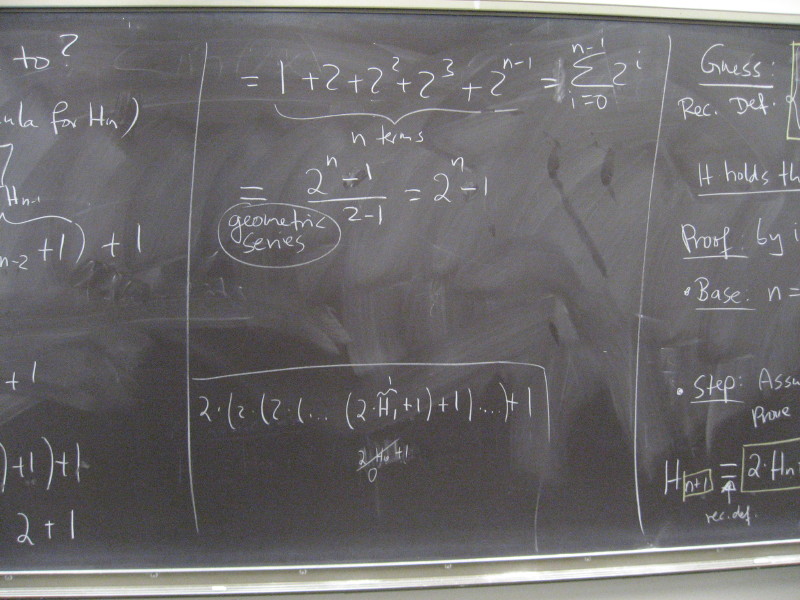 to?
ula for Hn)
Hn-1
n-2 +1) +1
+1
)+1)+1
2+1
= 1+2+2²+2³+2ⁿ⁻¹ = ∑ 2ⁱ
n-1
i=0
n terms
= 2ⁿ-1 / 2-1 = 2ⁿ-1
geometric
series
1
2·(2·(2·(... (2·H₁+1)+1)...)+1
Guess:
Rec. Def.
It holds th
Proof: by i
• Base: n =
• Step: Assu
Prove
Hn+1 = 2·Hn+
rec. def.